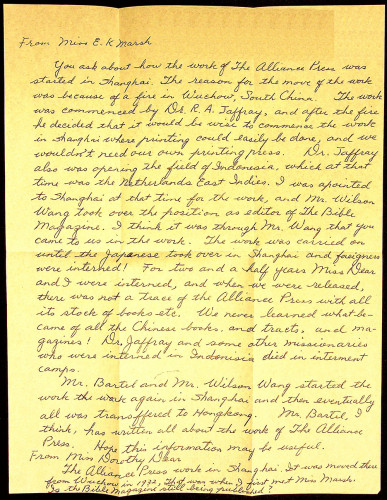 From Miss E. K Marsh
You ask about how the work of The Alliance Press was
started in Shanghai. The reason for the move of the work
was because of a fire in Wuchow, South China. The work
was commenced by Dr. R. A. Jaffray, and after the fire
he decided that it would be wise to commense the work
in Shanghai where printing could easily be done, and we
wouldn't need our own printing press. Dr. Jaffray
also was opening the field of Indonesia, which at that
time was the Netherlands East Indies. I was apointed
to Shanghai at that time for the work, and Mr. Wilson
Wang took over the position as editor of The Bible
Magazine. I think it was through Mr. Wang that you
came to us in the work. The work was carried on
until the Japanese took over in Shanghai and foreigners
were interned! For two and a half years Miss Dear
and I were interned, and when we were released,
there was not a trace of the Alliance Press with all
its stock of books etc. We never learned what be-
came of all the Chinese books and tracts, and ma-
gazines! Dr. Jaffray and some other missionaries
who were interned in Indonisia died in interment
camps.
Mr. Bartel and Mr. Wilson Wang started the
work the work again in Shanghai and then eventually
all was transffered to Hongkong. Mr. Bartel, I
think, has written all about the work of The Alliance
Press. Hope this information may be useful.
From Miss Dorothy Dear
The Alliance Press work in Shanghai. It was moved there
from Wuchow in That was when I first met Miss Marsh.
Is the Bible Magazine still being published?